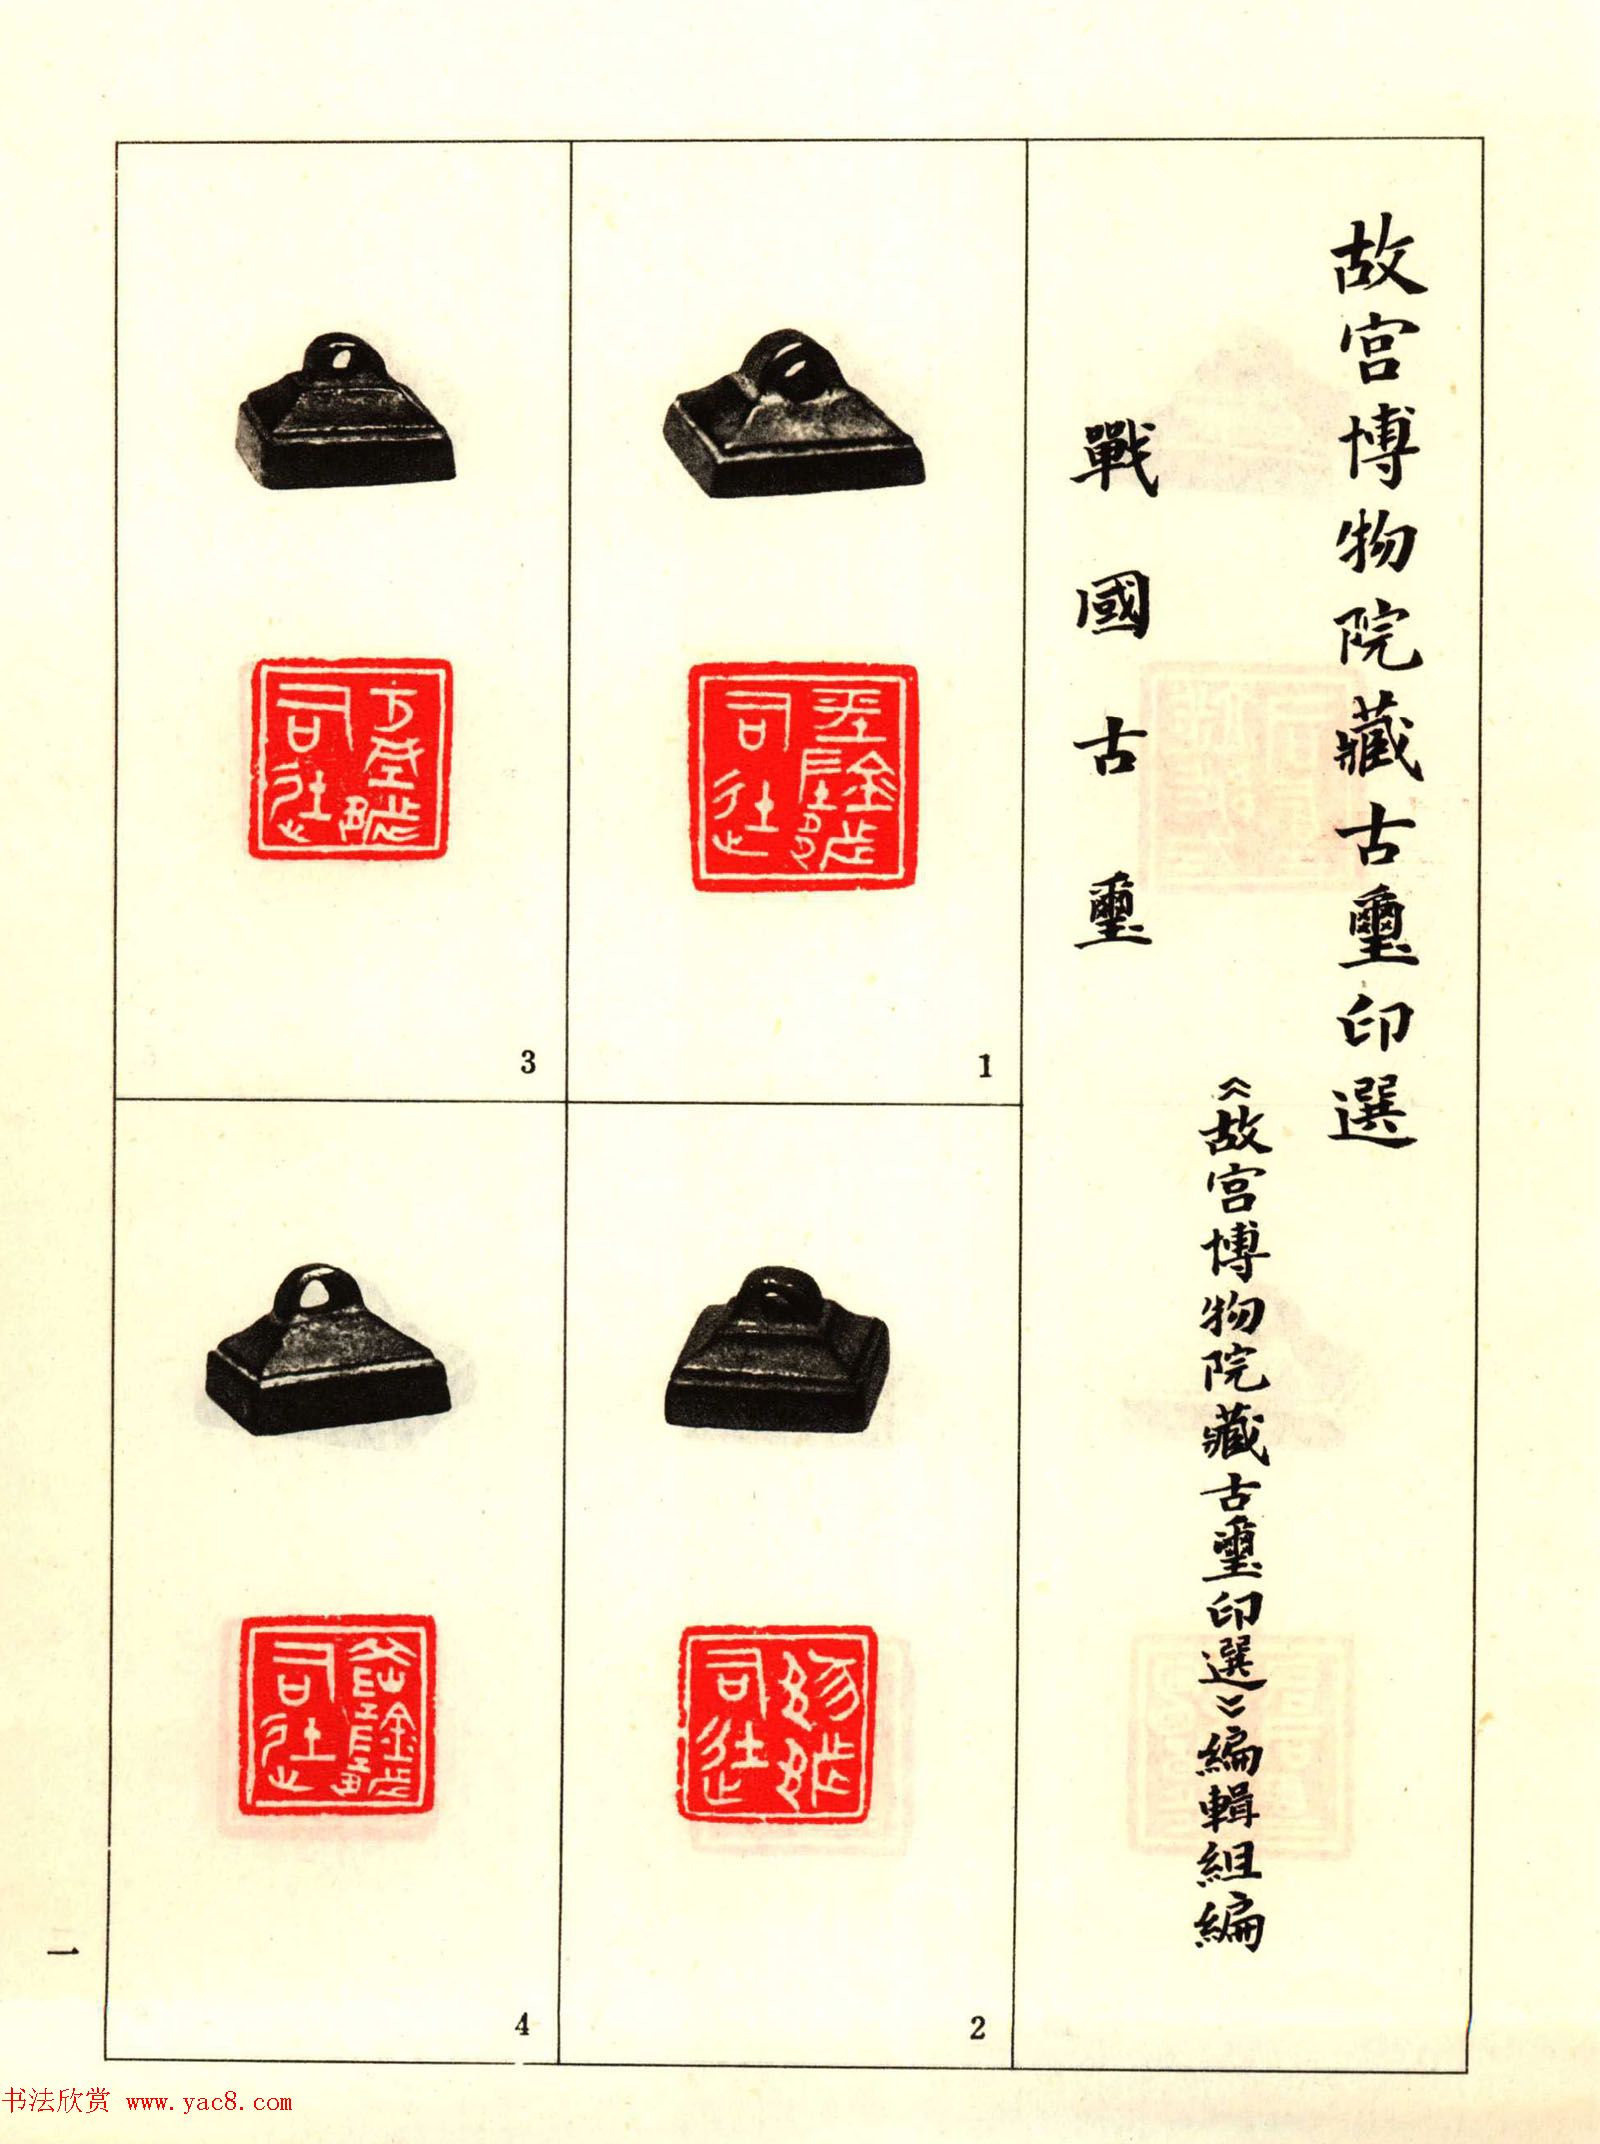 故宮博物院藏古璽印選
《故宮博物院藏古璽印選》編輯組編
戰國古璽
1
2
3
4
一
书法欣赏 www.yac8.com